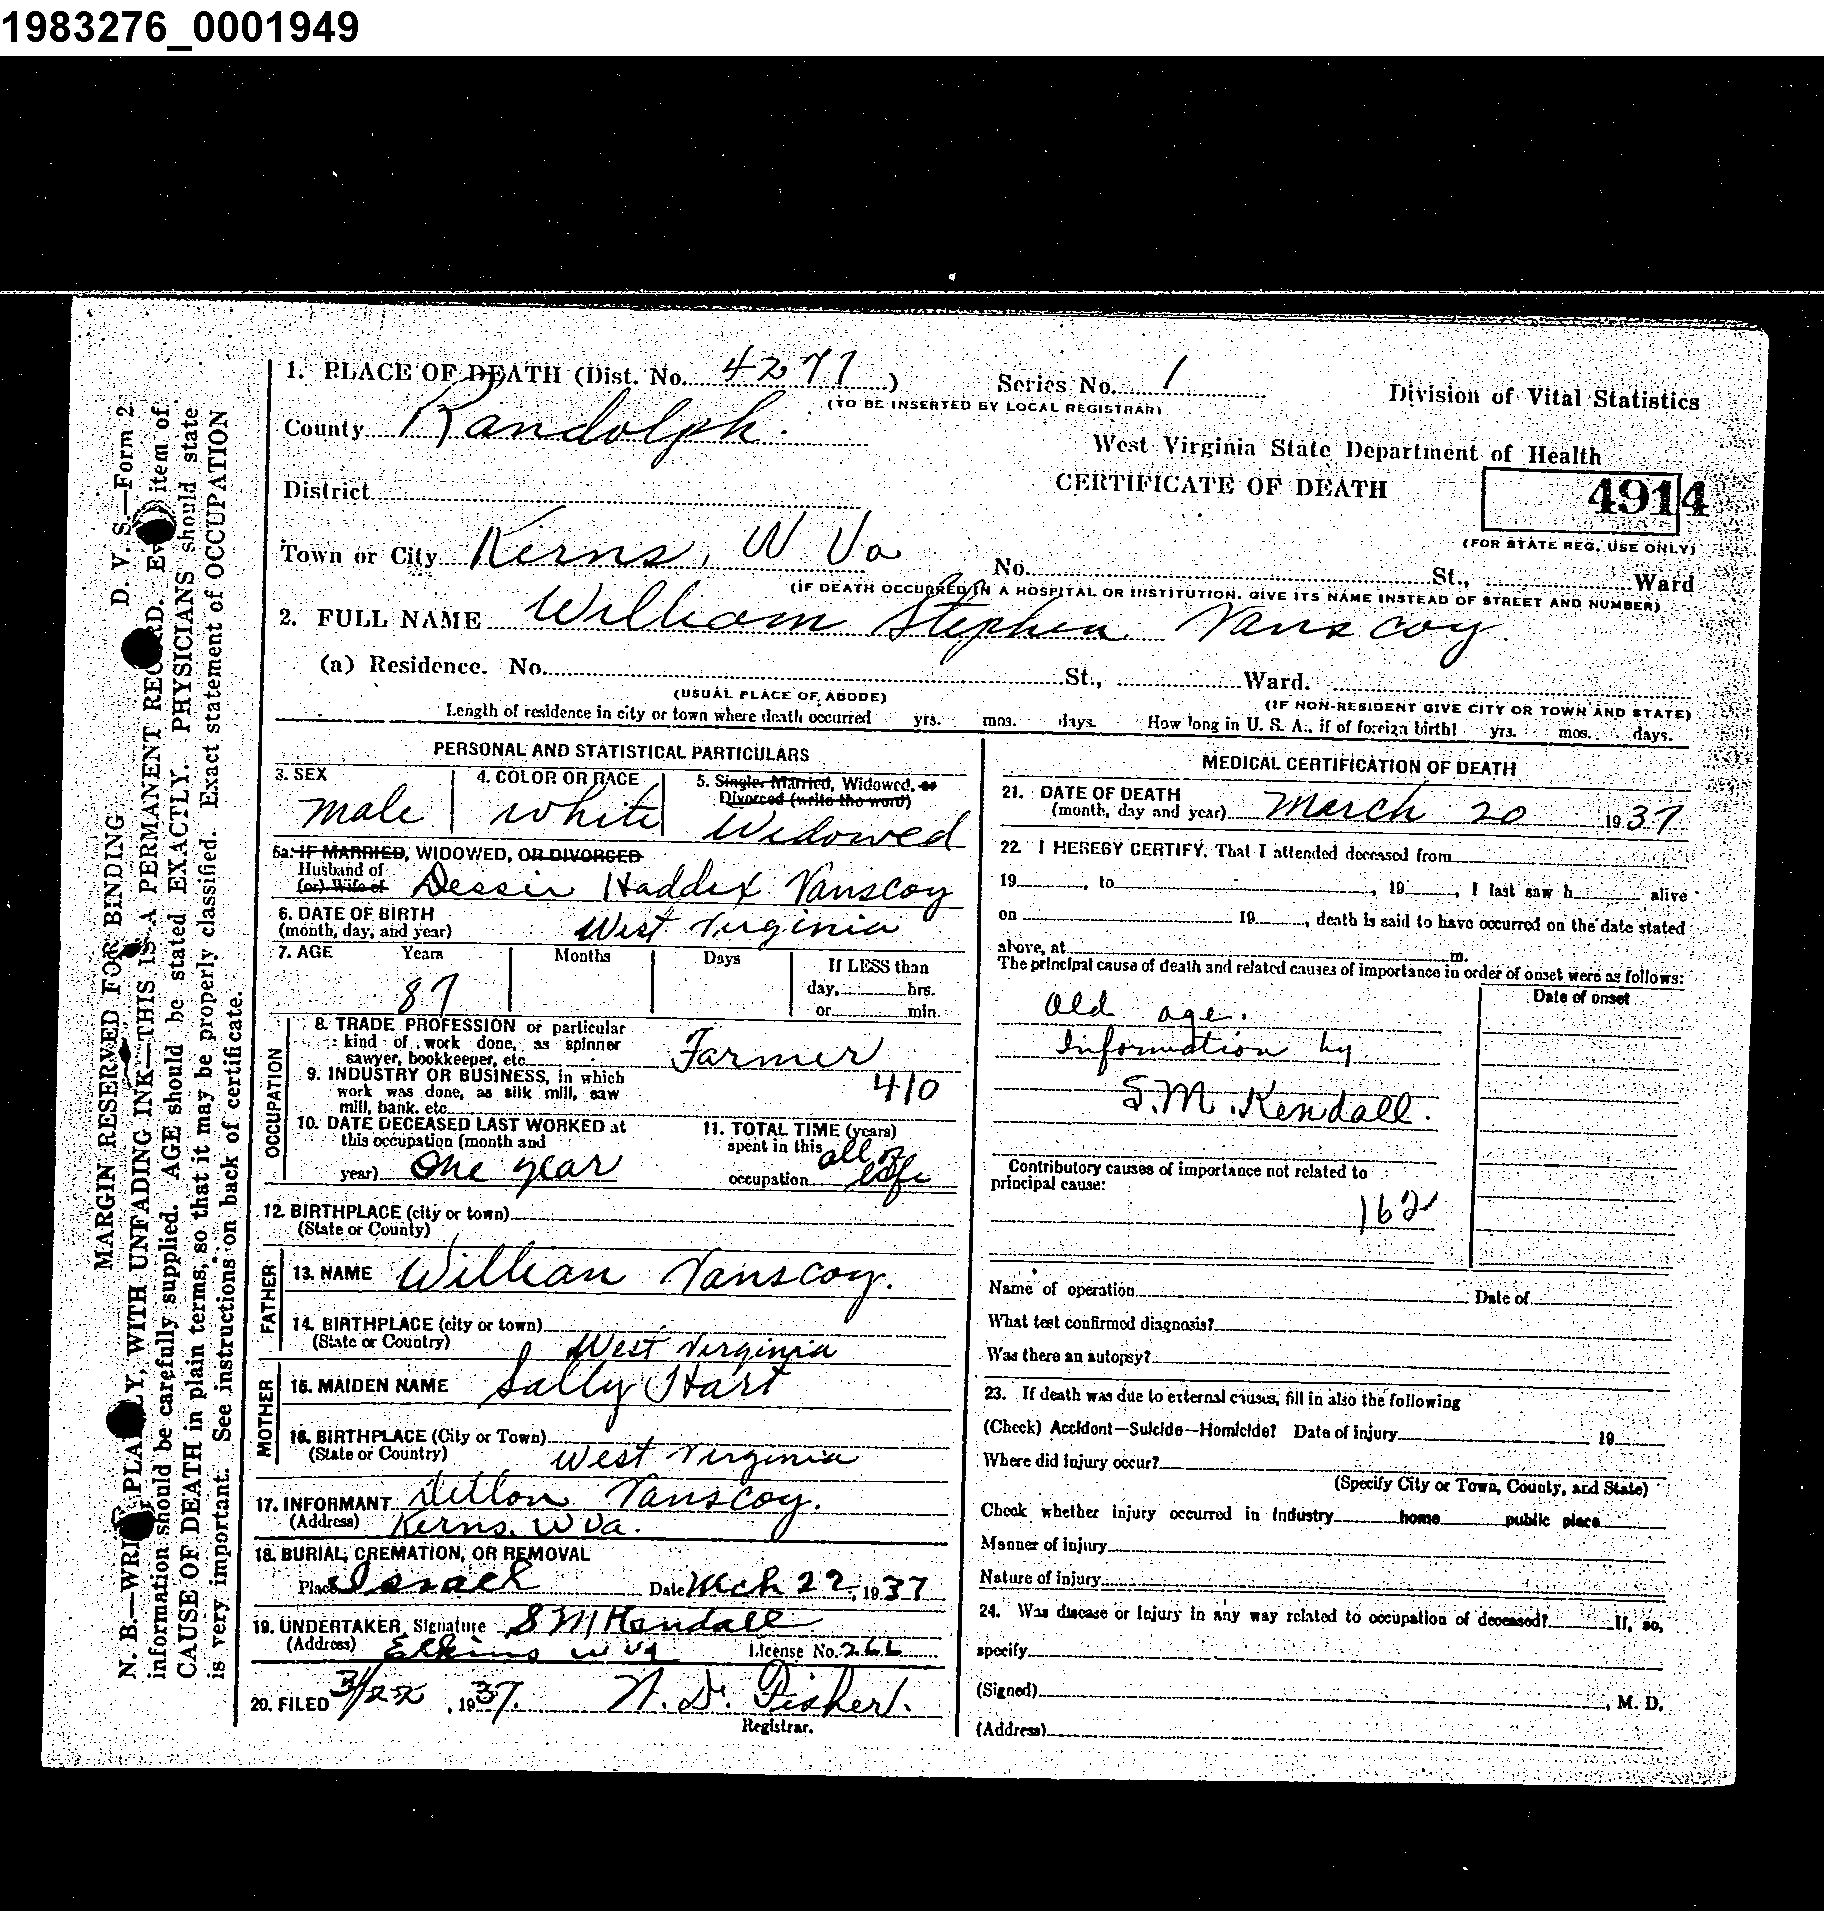 1983276_0001949
1. PLACE OF DEATH (Dist. No. 4277)
Series No. 1
(TO BE INSERTED BY LOCAL REGISTRAR)
County Randolph.
District
Town or City Kerns, W Va
Division of Vital Statistics
West Virginia State Department of Health
CERTIFICATE OF DEATH
4914
(FOR STATE REG. USE ONLY)
No. St., Ward
(IF DEATH OCCURRED IN A HOSPITAL OR INSTITUTION. GIVE ITS NAME INSTEAD OF STREET AND NUMBER)
2. FULL NAME William Stephen Vanscoy
(a) Residence. No. St., Ward.
(USUAL PLACE OF ABODE)
(IF NON-RESIDENT GIVE CITY OR TOWN AND STATE)
Length of residence in city or town where death occurred yrs. mos. days. How long in U. S. A., if of foreign birth? yrs. mos. days.
PERSONAL AND STATISTICAL PARTICULARS
3. SEX
male
4. COLOR OR RACE
white
5. Single, Married, Widowed, or
Divorced (write the word)
Widowed
5a. IF MARRIED, WIDOWED, OR DIVORCED
Husband of
(or) Wife of Dessie Haddix Vanscoy
6. DATE OF BIRTH
(month, day, and year) West Virginia
7. AGE Years Months Days If LESS than
day, hrs.
or min.
87
OCCUPATION
8. TRADE PROFESSION or particular
kind of work done, as spinner
sawyer, bookkeeper, etc. Farmer
9. INDUSTRY OR BUSINESS, in which
work was done, as silk mill, saw
mill, bank. etc.
410
10. DATE DECEASED LAST WORKED at
this occupation (month and
year) One year
11. TOTAL TIME (years)
spent in this
occupation all of life
12. BIRTHPLACE (city or town)
(State or County)
FATHER
13. NAME Willian Vanscoy.
14. BIRTHPLACE (city or town)
(State or Country) West Virginia
MOTHER
15. MAIDEN NAME Sally Hart
16. BIRTHPLACE (City or Town)
(State or Country) West Virginia
17. INFORMANT Dillon Vanscoy.
(Address) Kerns. W Va.
18. BURIAL, CREMATION, OR REMOVAL
Place Date Mch 22, 1937
19. UNDERTAKER, Signature S M Kendall
(Address) Elkins W Va License No. 266
20. FILED 3/22, 1937. Fisher.
Registrar.
MEDICAL CERTIFICATION OF DEATH
21. DATE OF DEATH
(month, day and year) March 20 1937
22. I HEREBY CERTIFY, That I attended deceased from
19 , to , 19 , I last saw h alive
on 19 , death is said to have occurred on the date stated
above, at m.
The principal cause of death and related causes of importance in order of onset were as follows:
Date of onset
Old age.
Information by
S. M. Kendall.
Contributory causes of importance not related to
principal cause:
162
Name of operation Date of
What test confirmed diagnosis?
Was there an autopsy?
23. If death was due to external causes, fill in also the following
(Check) Accident—Suicide—Homicide? Date of injury 19
Where did injury occur?
(Specify City or Town, County, and State)
Check whether injury occurred in industry home public place
Manner of injury
Nature of injury
24. Was disease or injury in any way related to occupation of deceased? If, so,
specify
(Signed) , M. D.
(Address)
D. V. S.—Form 2
MARGIN RESERVED FOR BINDING
N. B.—WRITE PLAINLY, WITH UNFADING INK—THIS IS A PERMANENT RECORD. Every item of
information should be carefully supplied. AGE should be stated EXACTLY. PHYSICIANS should state
CAUSE OF DEATH in plain terms, so that it may be properly classified. Exact statement of OCCUPATION
is very important. See instructions on back of certificate.